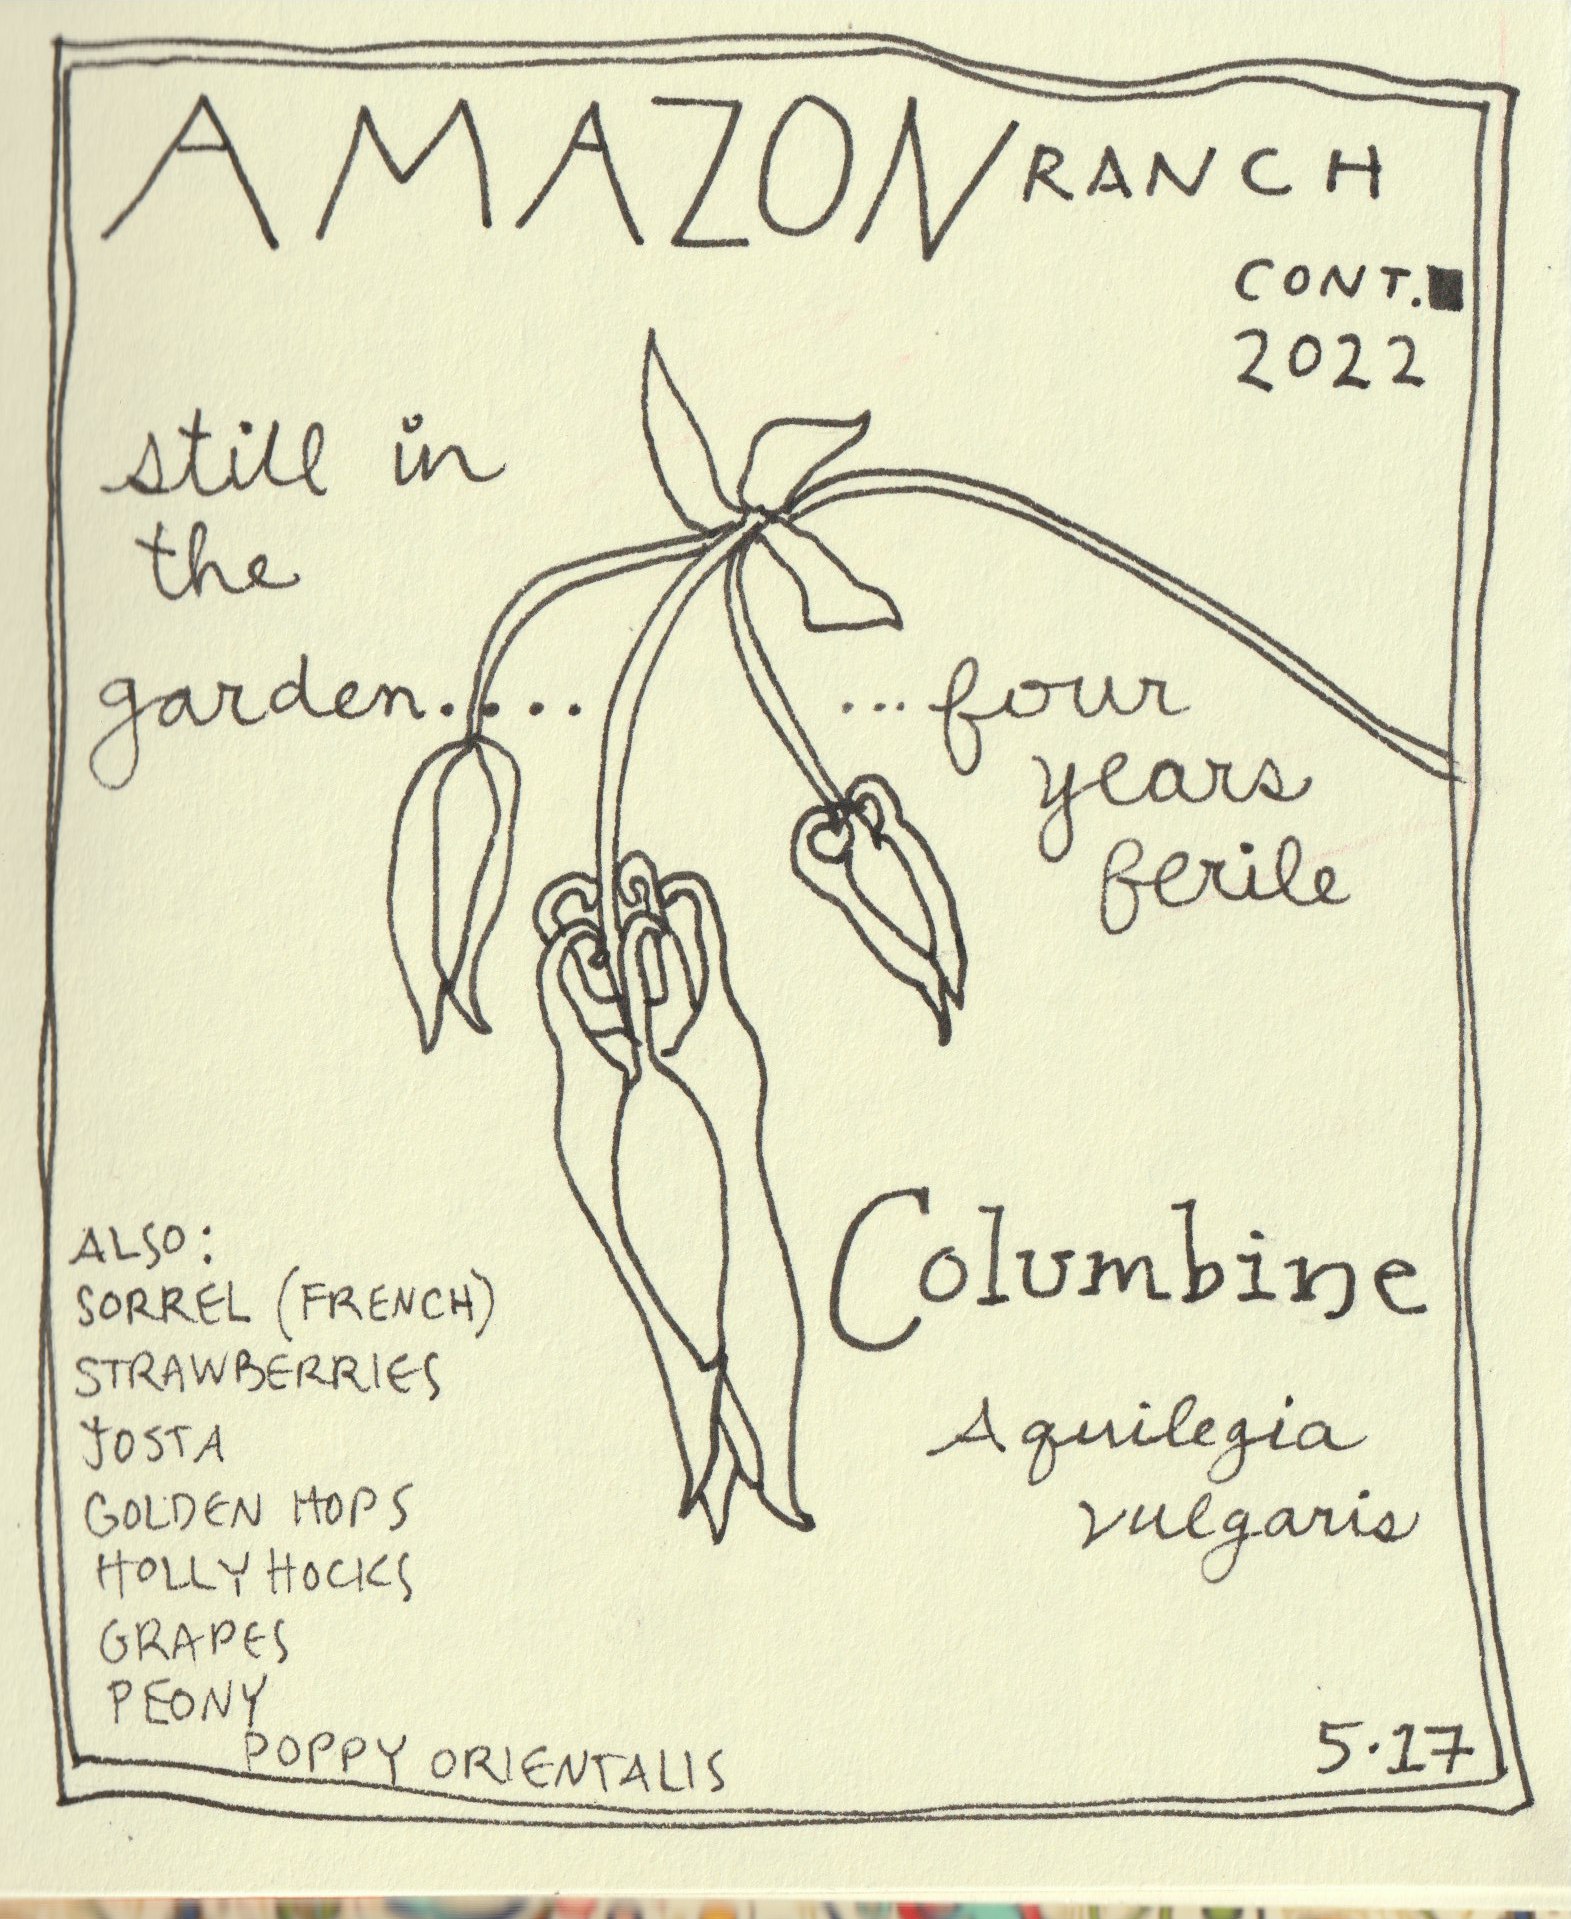 AMAZON RANCH
CONT.
2022
still in
the
garden....
...four
years
ferile
Columbine
Aquilegia
vulgaris
ALSO:
SORREL (FRENCH)
STRAWBERRIES
JOSTA
GOLDEN HOPS
HOLLYHOCKS
GRAPES
PEONY
POPPY ORIENTALIS
5·17